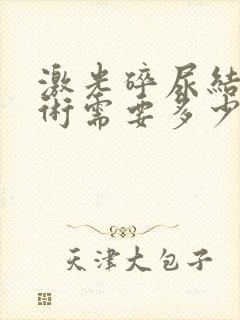 激光碎尿结
术需要多少
天津大包子